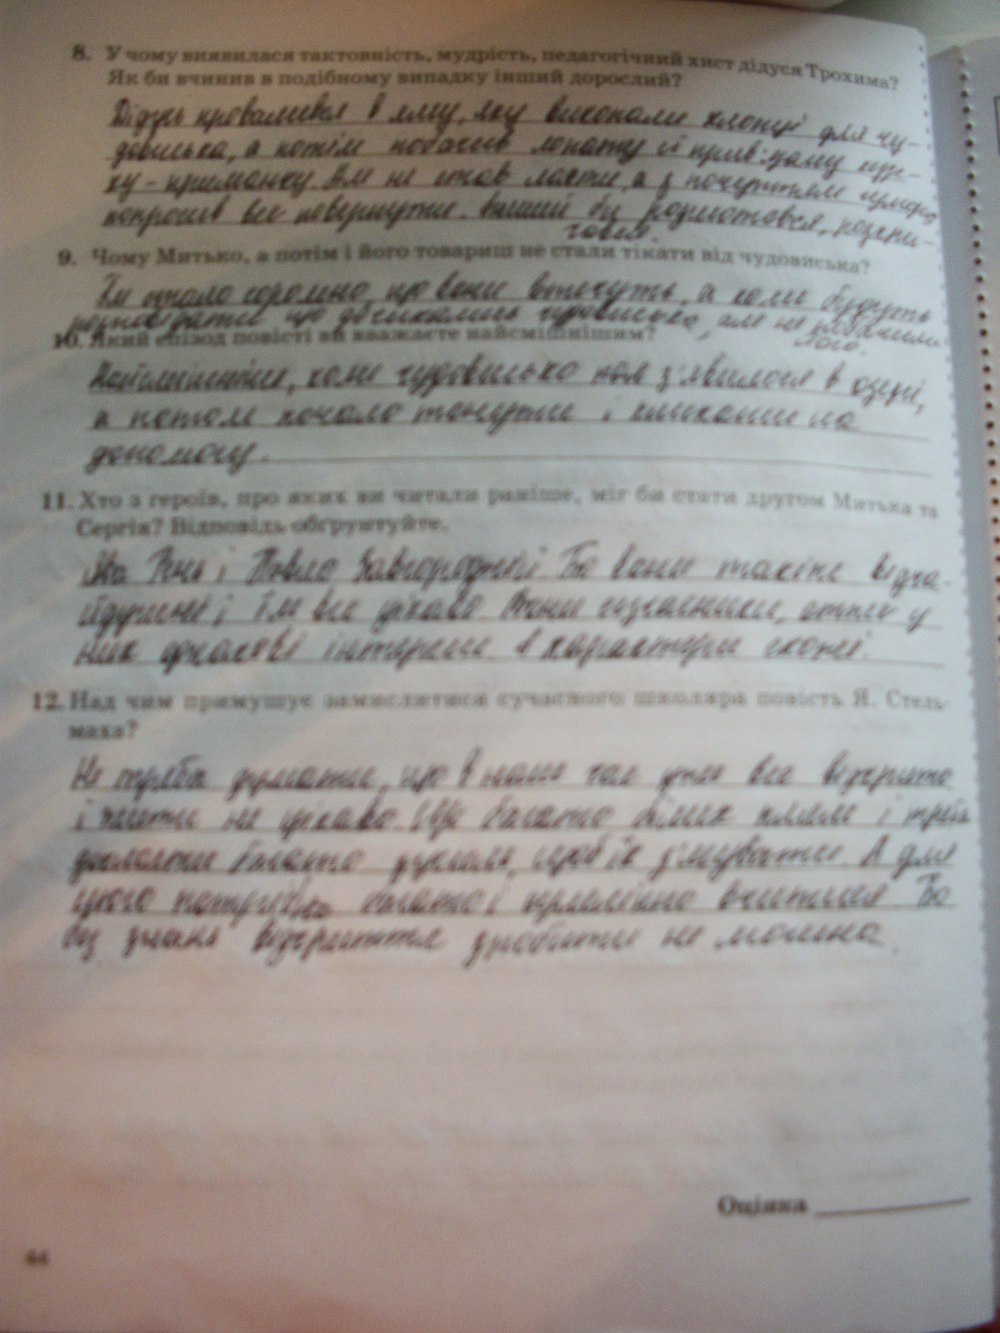 8. У чому виявилася тактовність, мудрість, педагогічний хист дідуся Трохима?
Як би вчинив в подібному випадку інший дорослий?
Дідусь провалився в яму, яку викопали хлопці для чу-
довиська, а потім побачив лопату й прив'язану
ку-приманку. Він не став лаяти, а з почуттям гумору
попросив все повернути. Інший би розкричався,
9. Чому Митько, а потім і його товариш не стали тікати від чудовиська?
Їм стало соромно, що вони втечуть, а коли будуть
розповідати, що чудовиська, але не побачили
його.
10. Який епізод повісті ви вважаєте найсмішнішим?
Найсмішніше, коли чудовисько з'явилося в озері,
а потом почало тонути і кликати на
допомогу.
11. Хто з героїв, про яких ви читали раніше, міг би стати другом Митька та
Сергія? Відповідь обґрунтуйте.
Ява Рень і Павло Завгородній. Бо вони також
і їм все цікаво. Вони, отже у
них однакові інтереси й характери схожі.
12. Над чим примушує замислитися сучасного школяра повість Я. Стель-
маха?
Не треба думати, що в наш час уже все відкрито
і жити не цікаво. Ще багато білих плям і треба
докласти багато зусиль, щоб їх з'ясувати. А для
цього потрібно багато і вчитися. Бо
без знань відкриття зробити не можна.
Оцінка
44